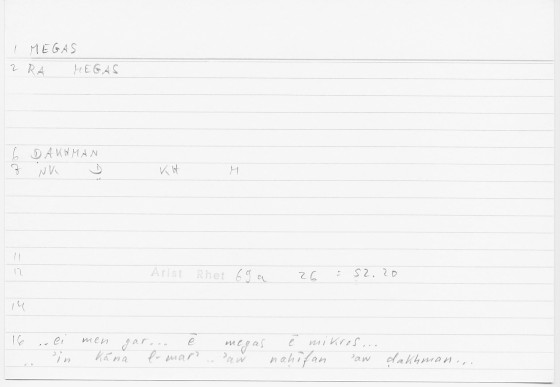 1 MEGAS
2 RA MEGAS
6 ḌAKHMAN
7 NK Ḍ KH M
11
12 Arist Rhet 69a 26 = 52.20
14
16 ..ei men gar... ē megas ē mikros...
.. ʾin kāna l-marʾ.. ʾaw naḥīfan ʾaw ḍakhman...